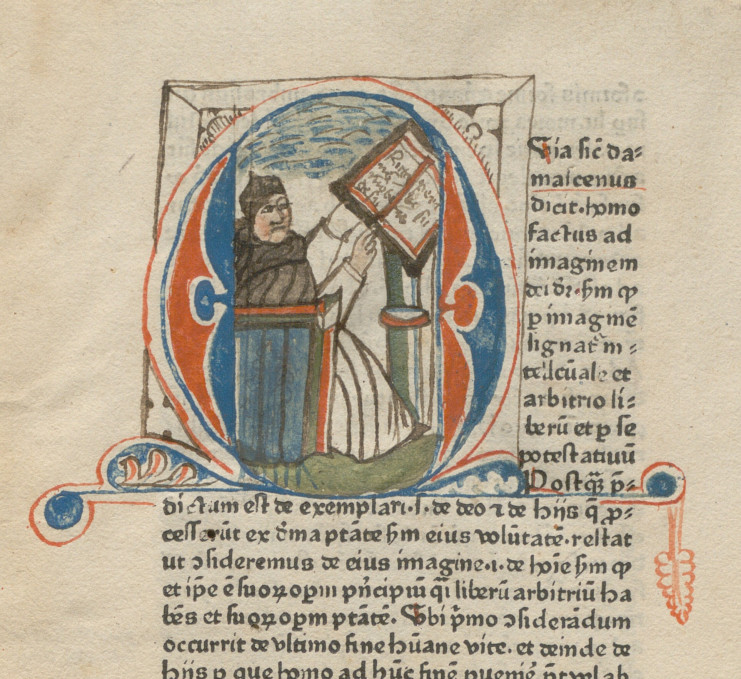 Quia sic̄ da⸗
mascenus
dicit. homo
factus ad
imaginem
dei dr̄. s̄m ꝙ
ꝑ imaginē
signat̄ in⸗
tellcūale et
arbitrio li⸗
berū et ꝑ se
potestatiuū
Postq̄ꝫ p̄⸗
dictum est de exemplari. s̄. de deo ⁊ de hijs q̄ ꝓ⸗
cesserūt ex d̄ina ptāte s̄m eius volūtatē. restat
ut ↄsideremus de eius imagine. i. de hoīe s̄m ꝙ
et ip̄e ē suoꝝ oꝑm pn̄cipiū q̄i liberū arbitriū ha
bēs et suoꝝ oꝑm ptātē. Vbi p̄mo ↄsiderādum
occurrit de vltimo fine hūane vite. et deinde de
hijs ꝑ que homo ad hūc finē ꝑueniē